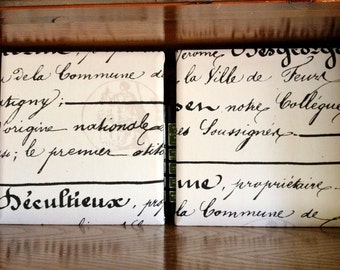 de la Commune de
tigny;
l'origine nationale
; le premier
Décultieux, pro
Jérome Desgeorge
la Ville de Feurs
notre Collègue
es Soussignés
me, propriétaire
la Commune de